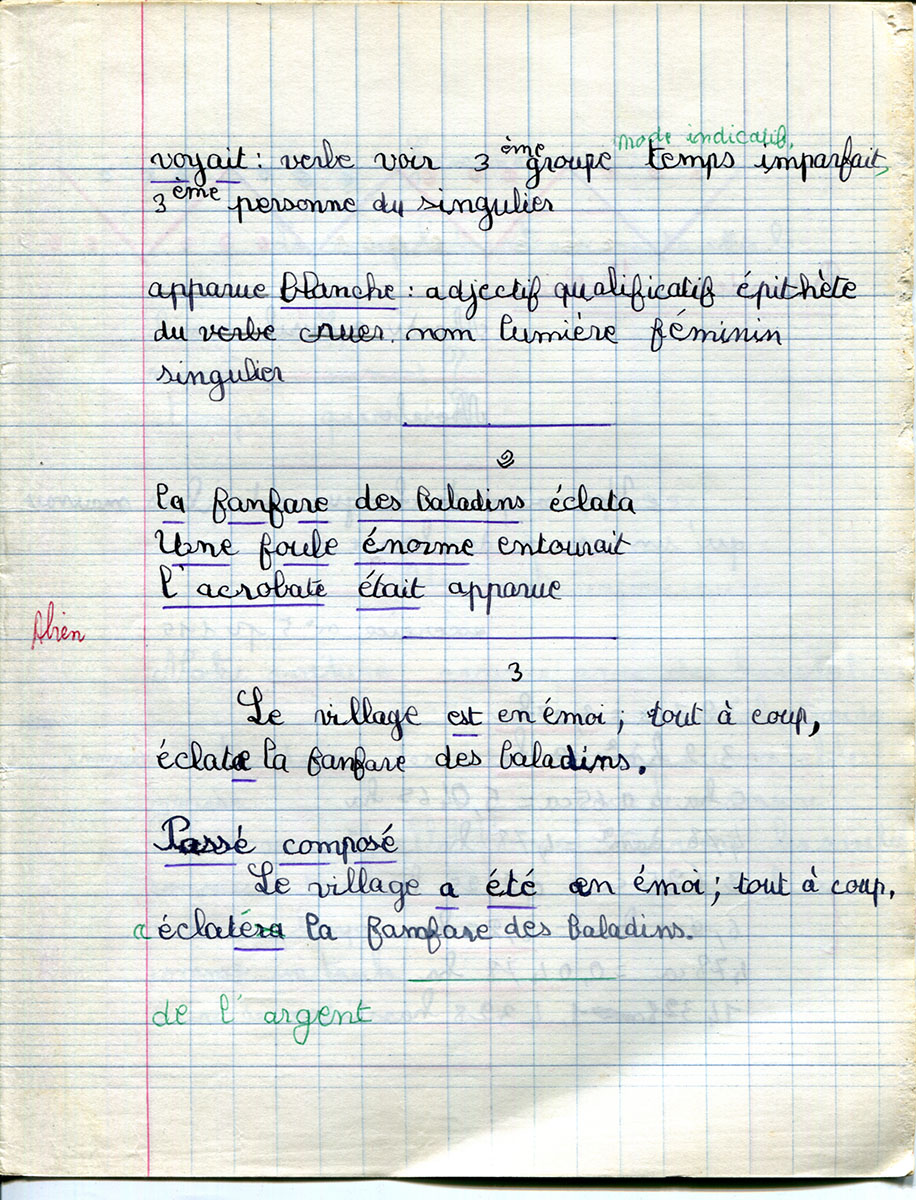 mode indicatif,
voyait : verbe voir 3ème groupe temps imparfait,
3ème personne du singulier
apparue blanche : adjectif qualificatif épithète
du verbe cruer. nom lumière féminin
singulier
2
la fanfare des Baladins éclata
Une foule énorme entourait
l'acrobate était apparue
Abien
3
Le village est en émoi ; tout à coup,
éclate la fanfare des baladins.
Passé composé
Le village a été en émoi ; tout à coup,
a éclatéra la famfare des baladins.
de l'argent